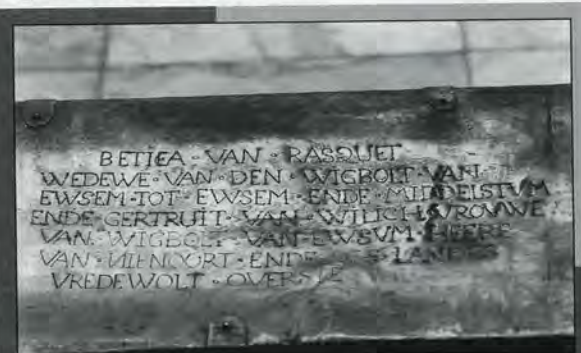 BETIEA · VAN · RASQUET
WEDEWE · VAN · DEN · WIGBOLT · VAN
EWSEM · TOT · EWSEM · ENDE · MIDDELSTVM
ENDE · GERTRUIT · VAN · WILICH · VROUWE
VAN · WIGBOLT · VAN · EWSVM · HEERE
VAN · NIENOORT · ENDE LANDES
VREDEWOLT · OVERSTE